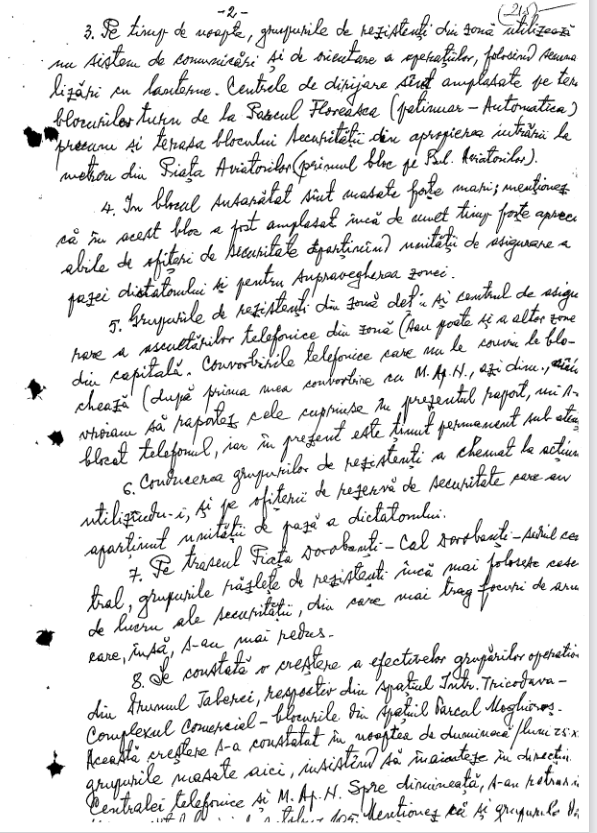 -2-
(215)
3. Pe timp de noapte, grupurile de rezistenți din zonă utilizează
un sistem de comunicări și de orientare a operațiilor, folosind semna
lizări cu lanterne. Centrele de dirijare sînt amplasate pe tera
blocurilor turn de la Parcul Floreasca (patinuar - Automatica)
precum și terasa blocului Securității din apropierea intrării la
metrou din Piața Aviatorilor (primul bloc pe Bul. Aviatorilor).
4. În blocul susarătat sînt masate forțe mari; menționez
că în acest bloc a fost amplasat încă de un timp forțe apreci
abile de ofițeri de securitate aparținînd unității de asigurare a
pazei dictatorului și pentru supravegherea zonei.
5. Grupurile de rezistenți din zonă deț și centrul de asigu
rare a ascultărilor telefonice din zonă (sau poate și a altor zone
din capitală. Convorbirile telefonice care nu le convin le blo-
chează (după prima mea convorbire cu M.Ap.N., azi dim.,
vroiam să raportez cele cuprinse în prezentul raport, mi s-a
blocat telefonul, iar în prezent este ținut permanent sub
6. Conducerea grupurilor de rezistenți a chemat la acțiun
utilizîndu-i, și pe ofițerii de rezervă de securitate care au
aparținut unității de pază a dictatorului.
7. Pe traseul Piața Dorobanți - Cal Dorobanți - sediul cen
tral, grupurile răzlețe de rezistenți încă mai folosesc case
de lucru ale securității, din care mai trag focuri de arm
care, însă, s-au mai redus.
8. Se constată o creștere a efectivelor grupărilor operativ
din Drumul Taberei, respectiv din spațiul Intr. Tricodava -
Complexul Comercial - blocurile din spațiul Parcul Moghioroș.
Această creștere s-a constatat în noaptea de duminică/luni
grupurile masate aici, insistînd să înainteze în direcția
Centralei telefonice și M.Ap.N. Spre dimineață, s-au retras
Menționez că și grupurile